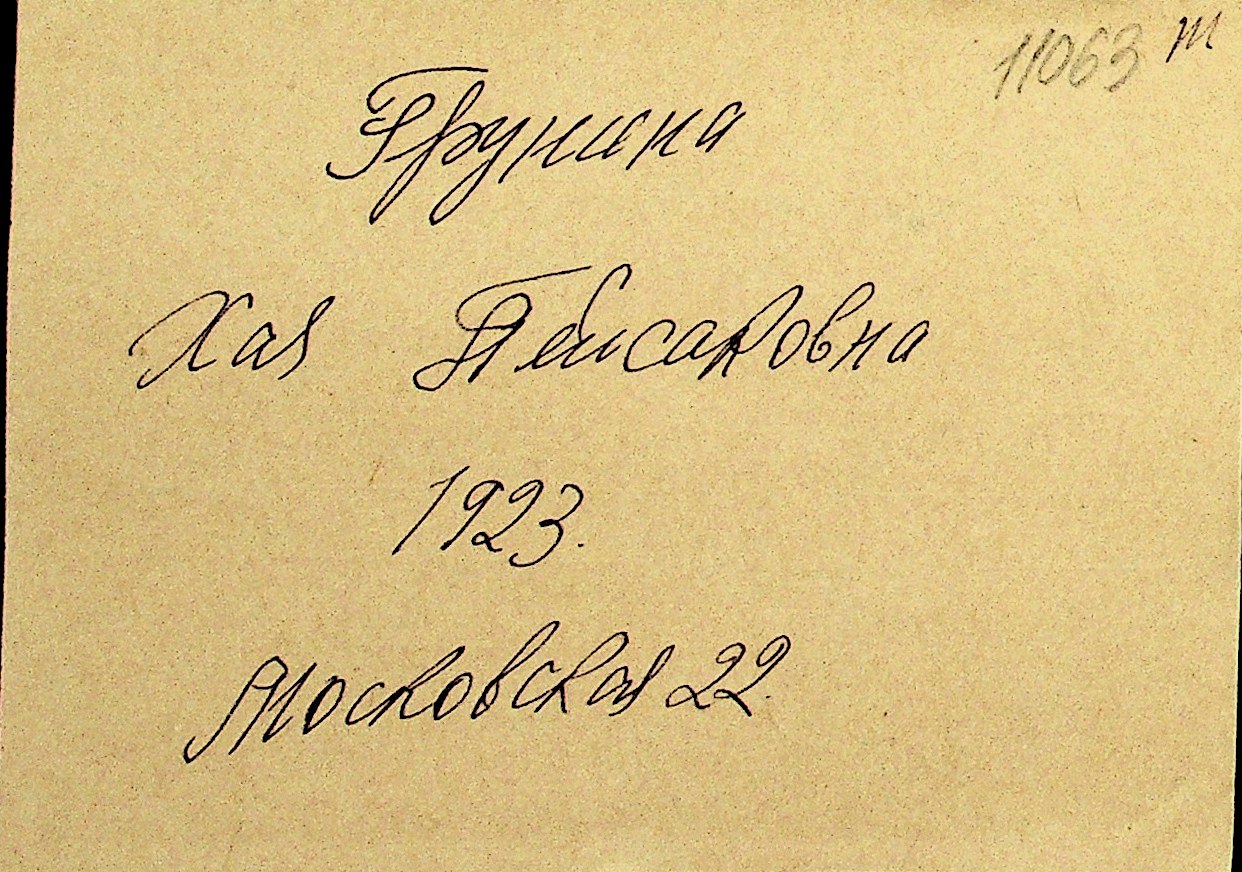 11063 т
Грунина
Хая Пейсаковна
1923.
Московская 22.